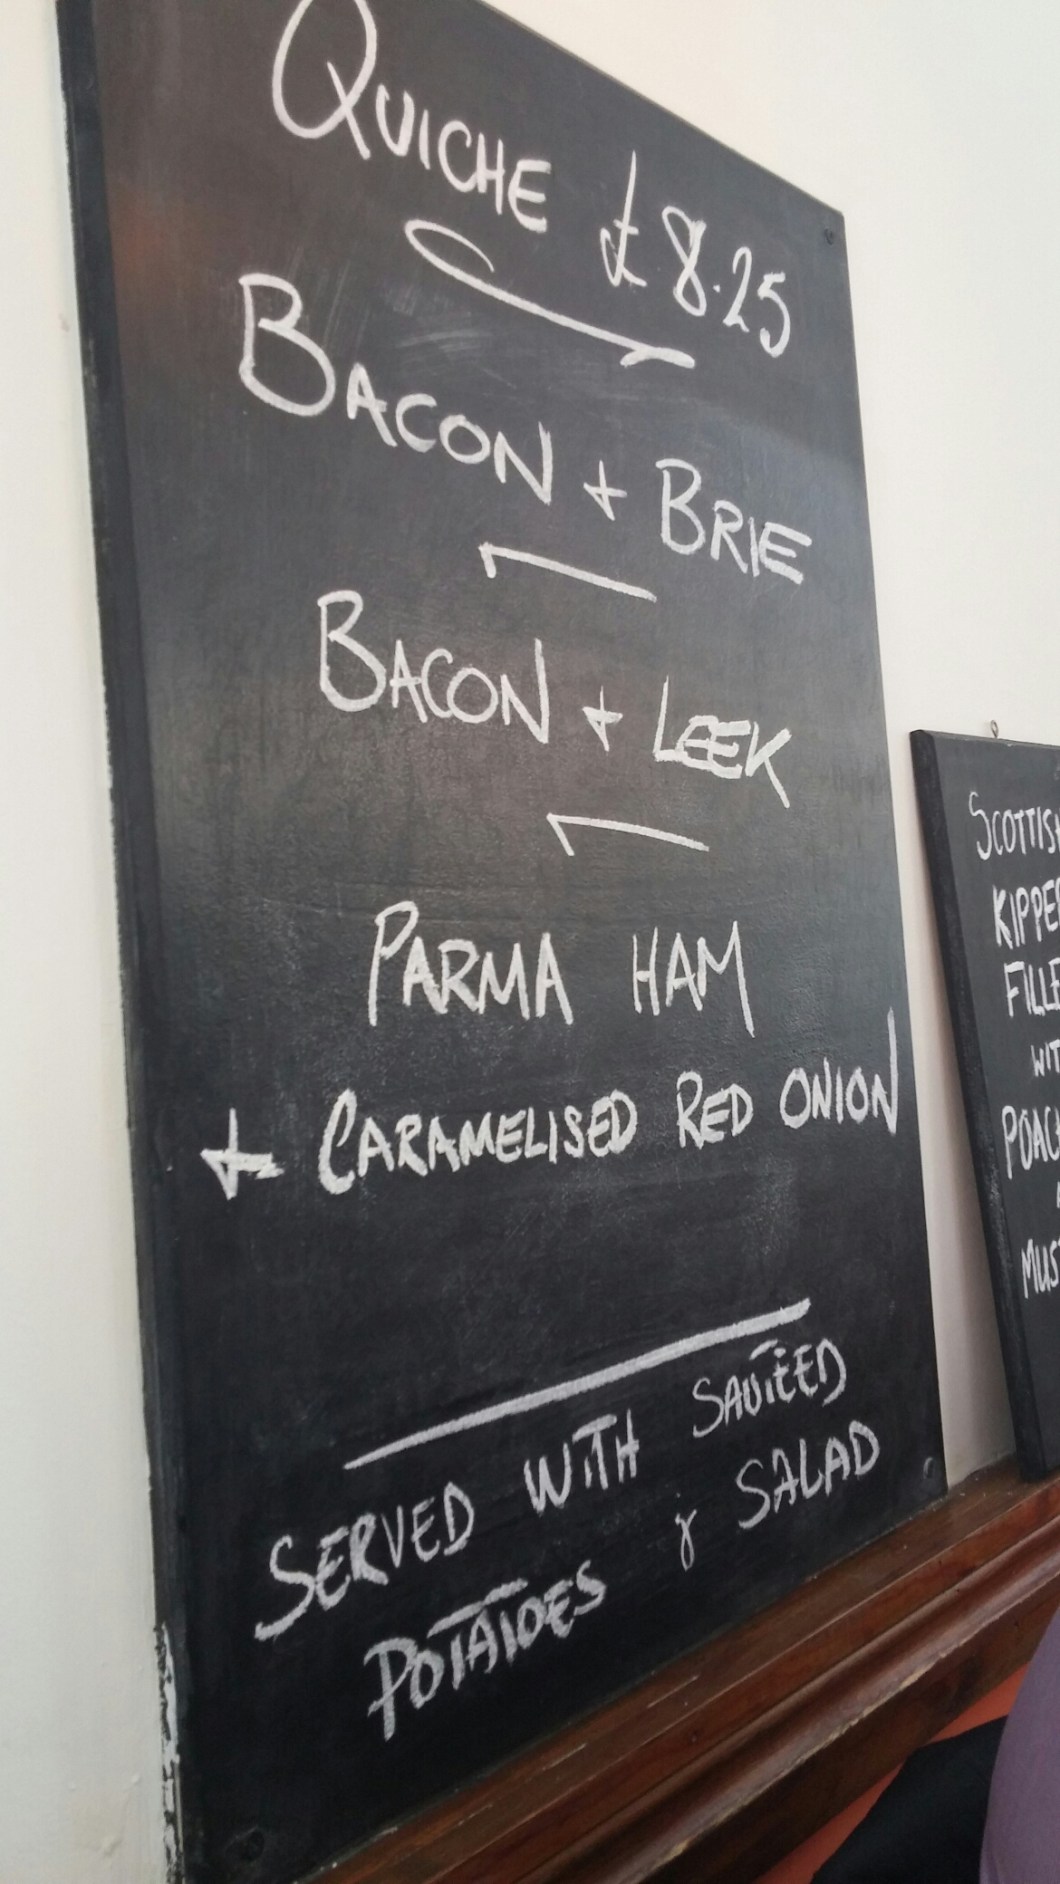 QUICHE £8.25
BACON + BRIE
BACON + LEEK
PARMA HAM
+ CARAMELISED RED ONION
SERVED WITH SAUTEED
POTATOES & SALAD
SCOTTISH
KIPPE
FILLE
WIT
POAC
MUST